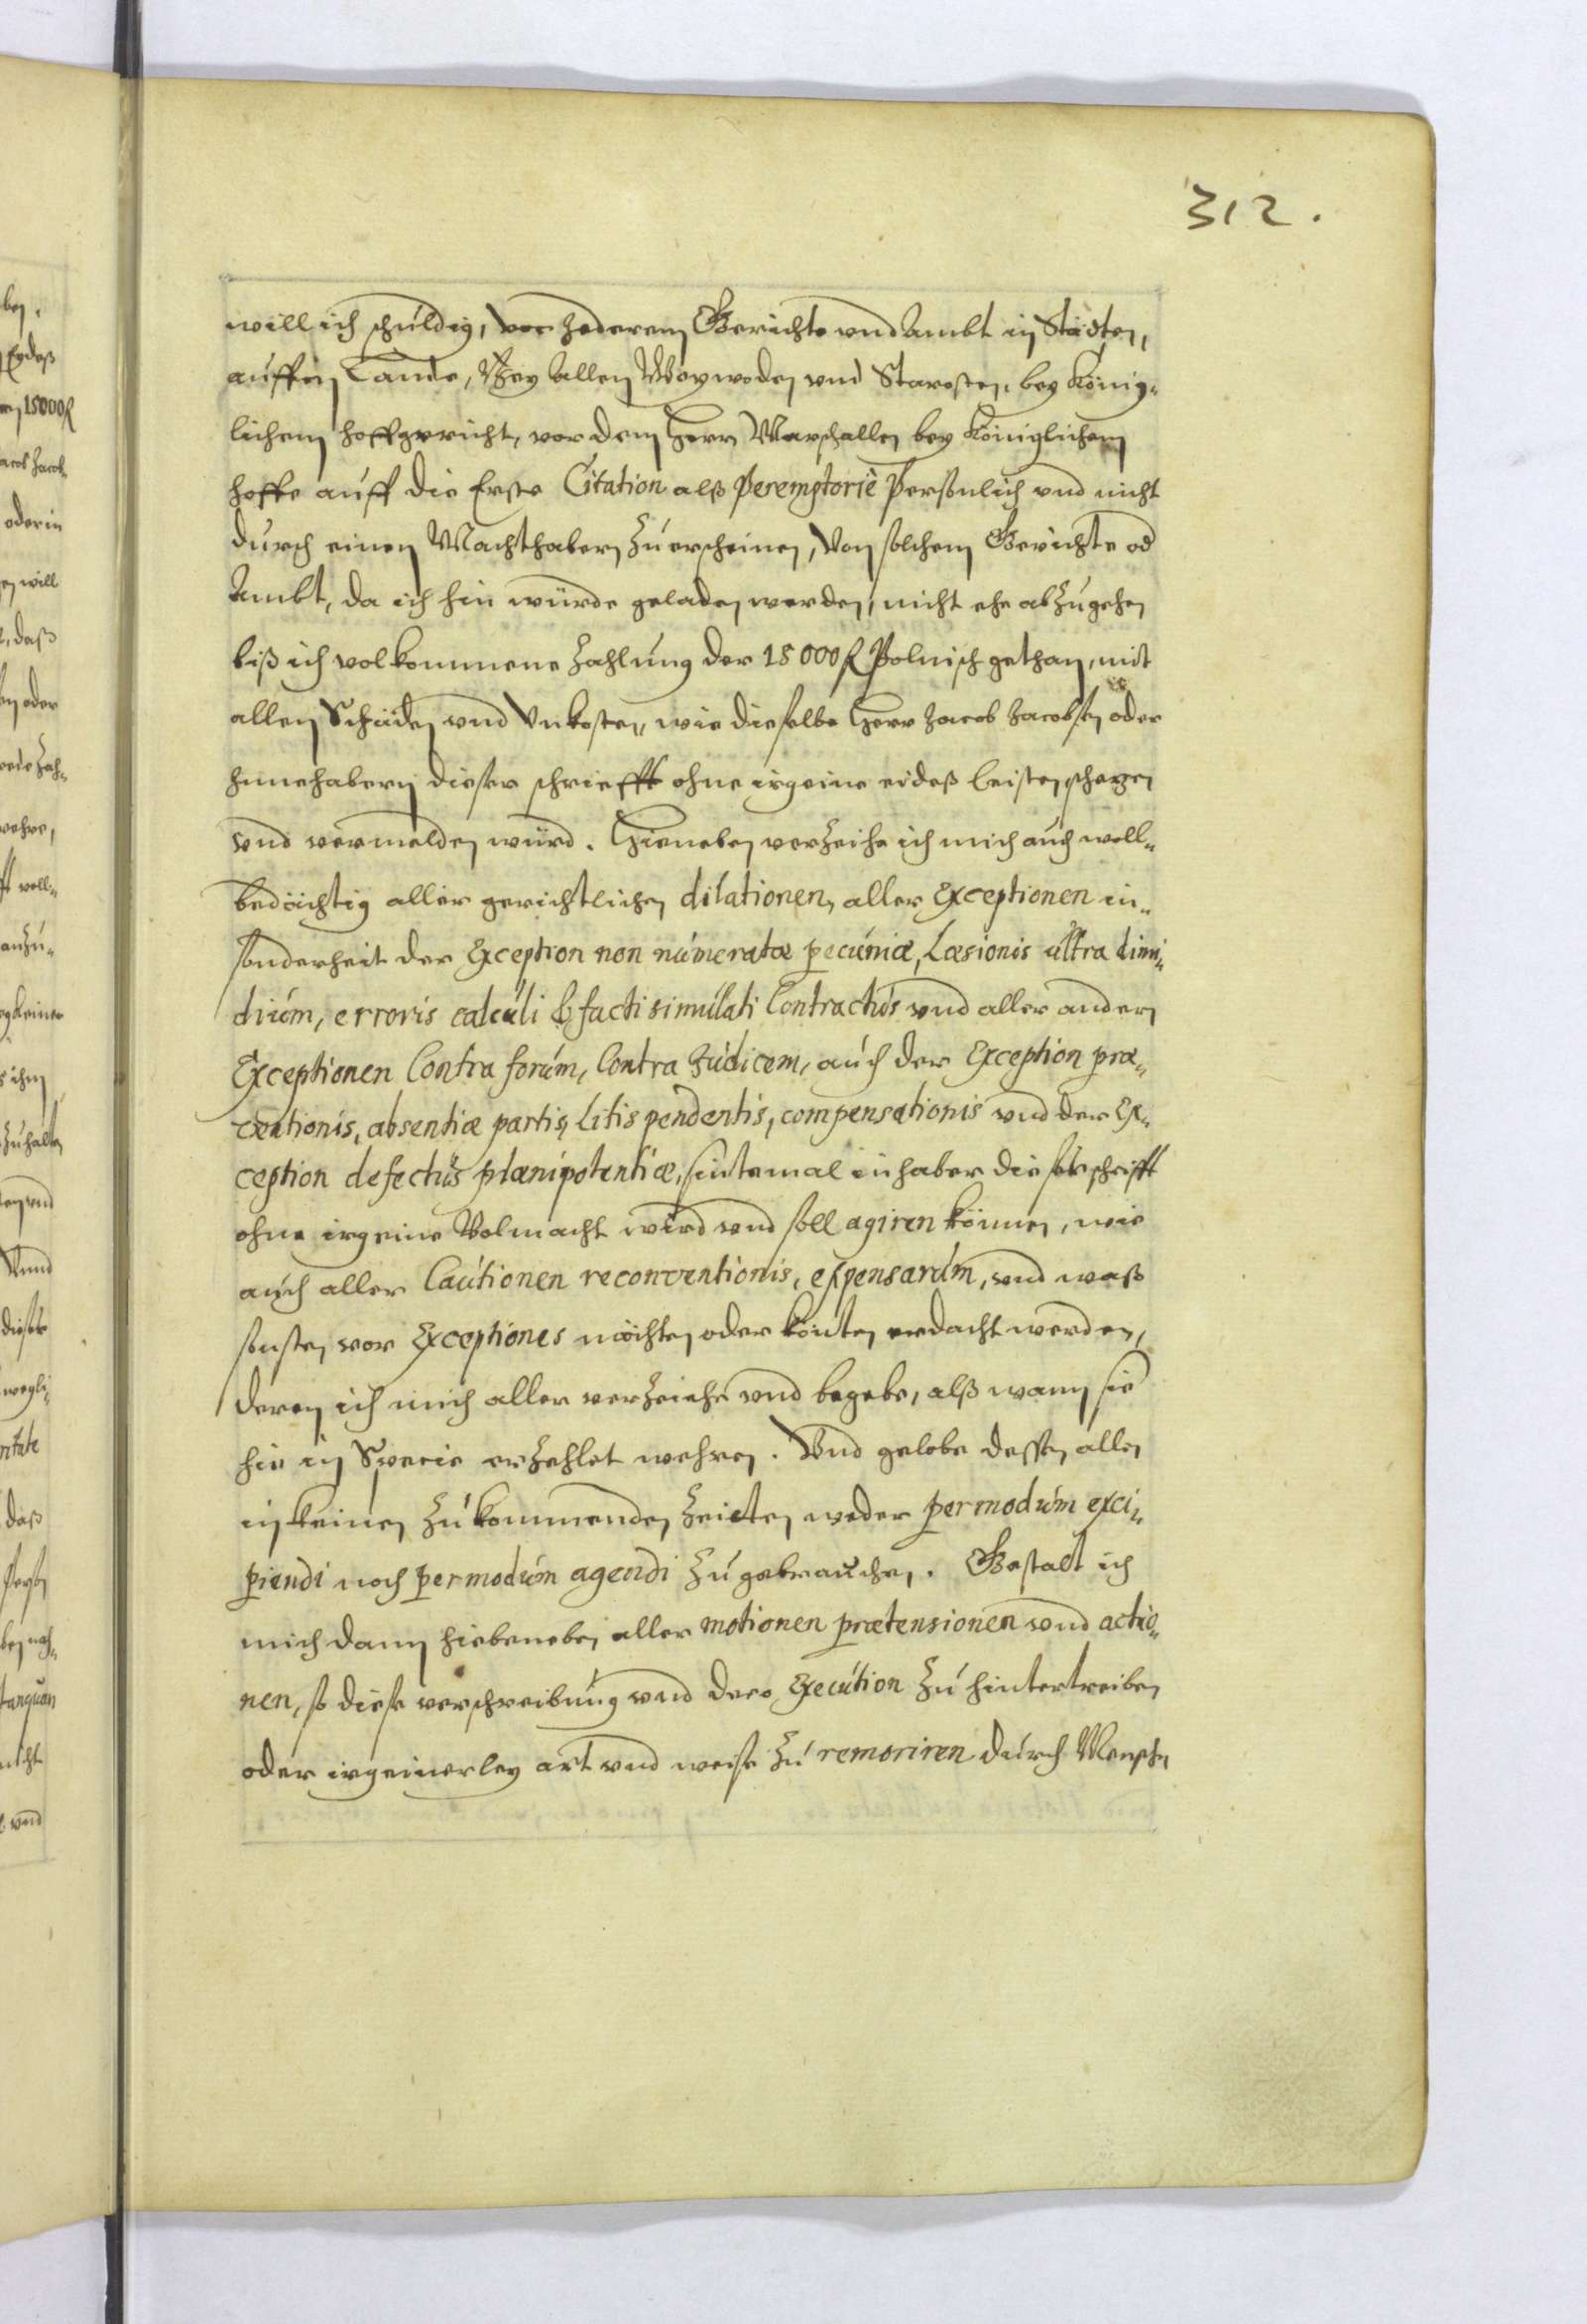 312.
will ich schuldig, vor Jederem Gerichte vnd Ambt in Städten,
auffen Lande, Bey allen Woywoden vnd Starosten, bey König„
lichem hoffgericht, vor dem Herrn Marschallen bey Königlichem
hoffe auff die Erste Citation alß Peremptoriè Persönlich vnd nicht
durch einen Machthabern zu erscheinen, Von solchem Gerichte od
Ambt, da ich hin würde geladen werden, nicht ehe abzugehen
biß ich volkommene Zahlung der 15000 fl Polnisch gethan, mit
allen Schäden vnd Vnkosten, wie dieselbe Herr Jacob Jacobsen oder
Innehabern dieser schriefft ohne irgeine eideß leisten schezen
vnd vermelden würd. Hieneben verzeihe ich mich auch woll„
bedächtig aller gerichtlichen dilationen, aller Exceptionen in„
sonderheit der Exception non numeratæ pecuniæ, Læsionis ultra dimi„
dium, erroris calculi & facti simulati Contractus vnd aller andern
Exceptionen Contra forum, Contra Judicem, auch der Exception præ„
ventionis, absentiæ partis, litis pendentis, compensationis vnd der Ex„
ception defectus plænipotentiæ, sintemal inhaber dieser schrifft
ohne irgeine Volmacht wird vnd soll agiren können, wie
auch aller Cautionen reconventionis, expensarum, vnd waß
sonsten vor Exceptiones möchten oder könten erdacht werden,
deren ich mich aller verzeihe vnd begebe, alß wann sie
hie in Specie erzehlet wehren. Vnd gelobe dessen allen
in keinen zukommenden Zeiten weder per modum exci„
piendi noch per modum agendi zu gebrauchen. Gestalt ich
mich dann hiebeneben aller motionen prætensionen vnd actio„
nen, so diese verschreibung vnd dero Execution zu hintertreiben
oder irgeinerley art vnd weise zu remoriren durch Menschen